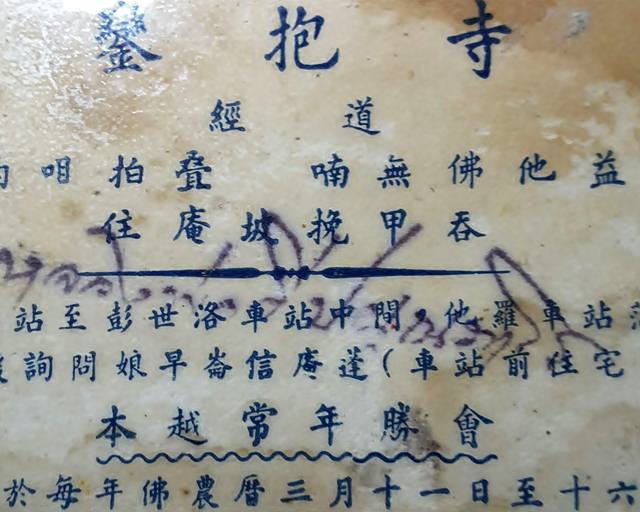 鑾抱寺
經道
咱拍叠 喃無佛他益
住庵坡挽甲吞
站至彭世洛車站中間，他羅車站
詢問娘早崙信庵蓬(車站前住宅
本越常年勝會
於每年佛農曆三月十一日至十六